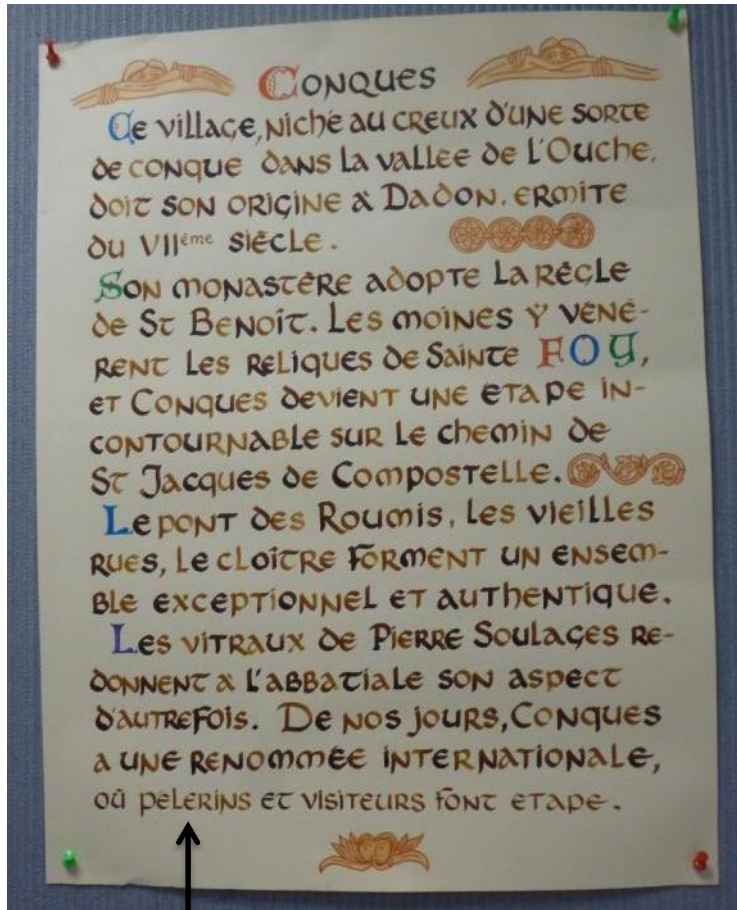 Conques
Ce village, niché au creux d'une sorte
de conque dans la vallée de l'Ouche,
doit son origine à Dadon, ermite
du VIIème siècle.
Son monastère adopte la règle
de St Benoît. Les moines y vénè-
rent les reliques de Sainte FOY,
et Conques devient une étape in-
contournable sur le chemin de
St Jacques de Compostelle.
Le pont des Roumis, les vieilles
rues, le cloître forment un ensem-
ble exceptionnel et authentique.
Les vitraux de Pierre Soulages re-
donnent à l'abbatiale son aspect
d'autrefois. De nos jours, Conques
a une renommée internationale,
où pélerins et visiteurs font étape.